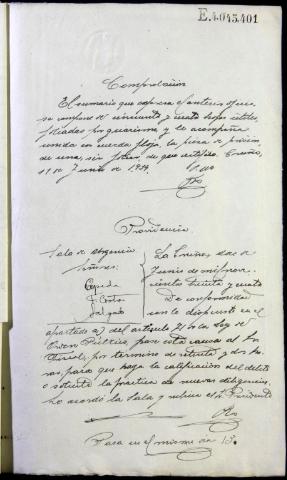 E.4.045.401
Comprobación
El sumario que expresa el anterior oficio
se compone de cincuenta y cuatro hojas útiles,
foliadas por guarismo y le acompaña
unida en cuerda floja, la pieza de prisión
de una, sin foliar, de que certifico. Coruña,
11 de Junio de 1934.
Providencia
Sala de Urgencia
Señores:
Cepeda
F. Costas
Salgado
La Coruña, doce de
Junio de mil nove-
cientos treinta y cuatro
De conformidad
con lo dispuesto en el
apartado a) del artículo 71 de la Ley de
Orden Público, pase esta causa al Sr.
Fiscal, por término de setenta y dos ho-
ras, para que haga la calificación del delito
o solicite la práctica de nuevas diligencias.
Lo acordó la Sala y rubrica el Sr. Presidente
Pasa en el mismo día 13.